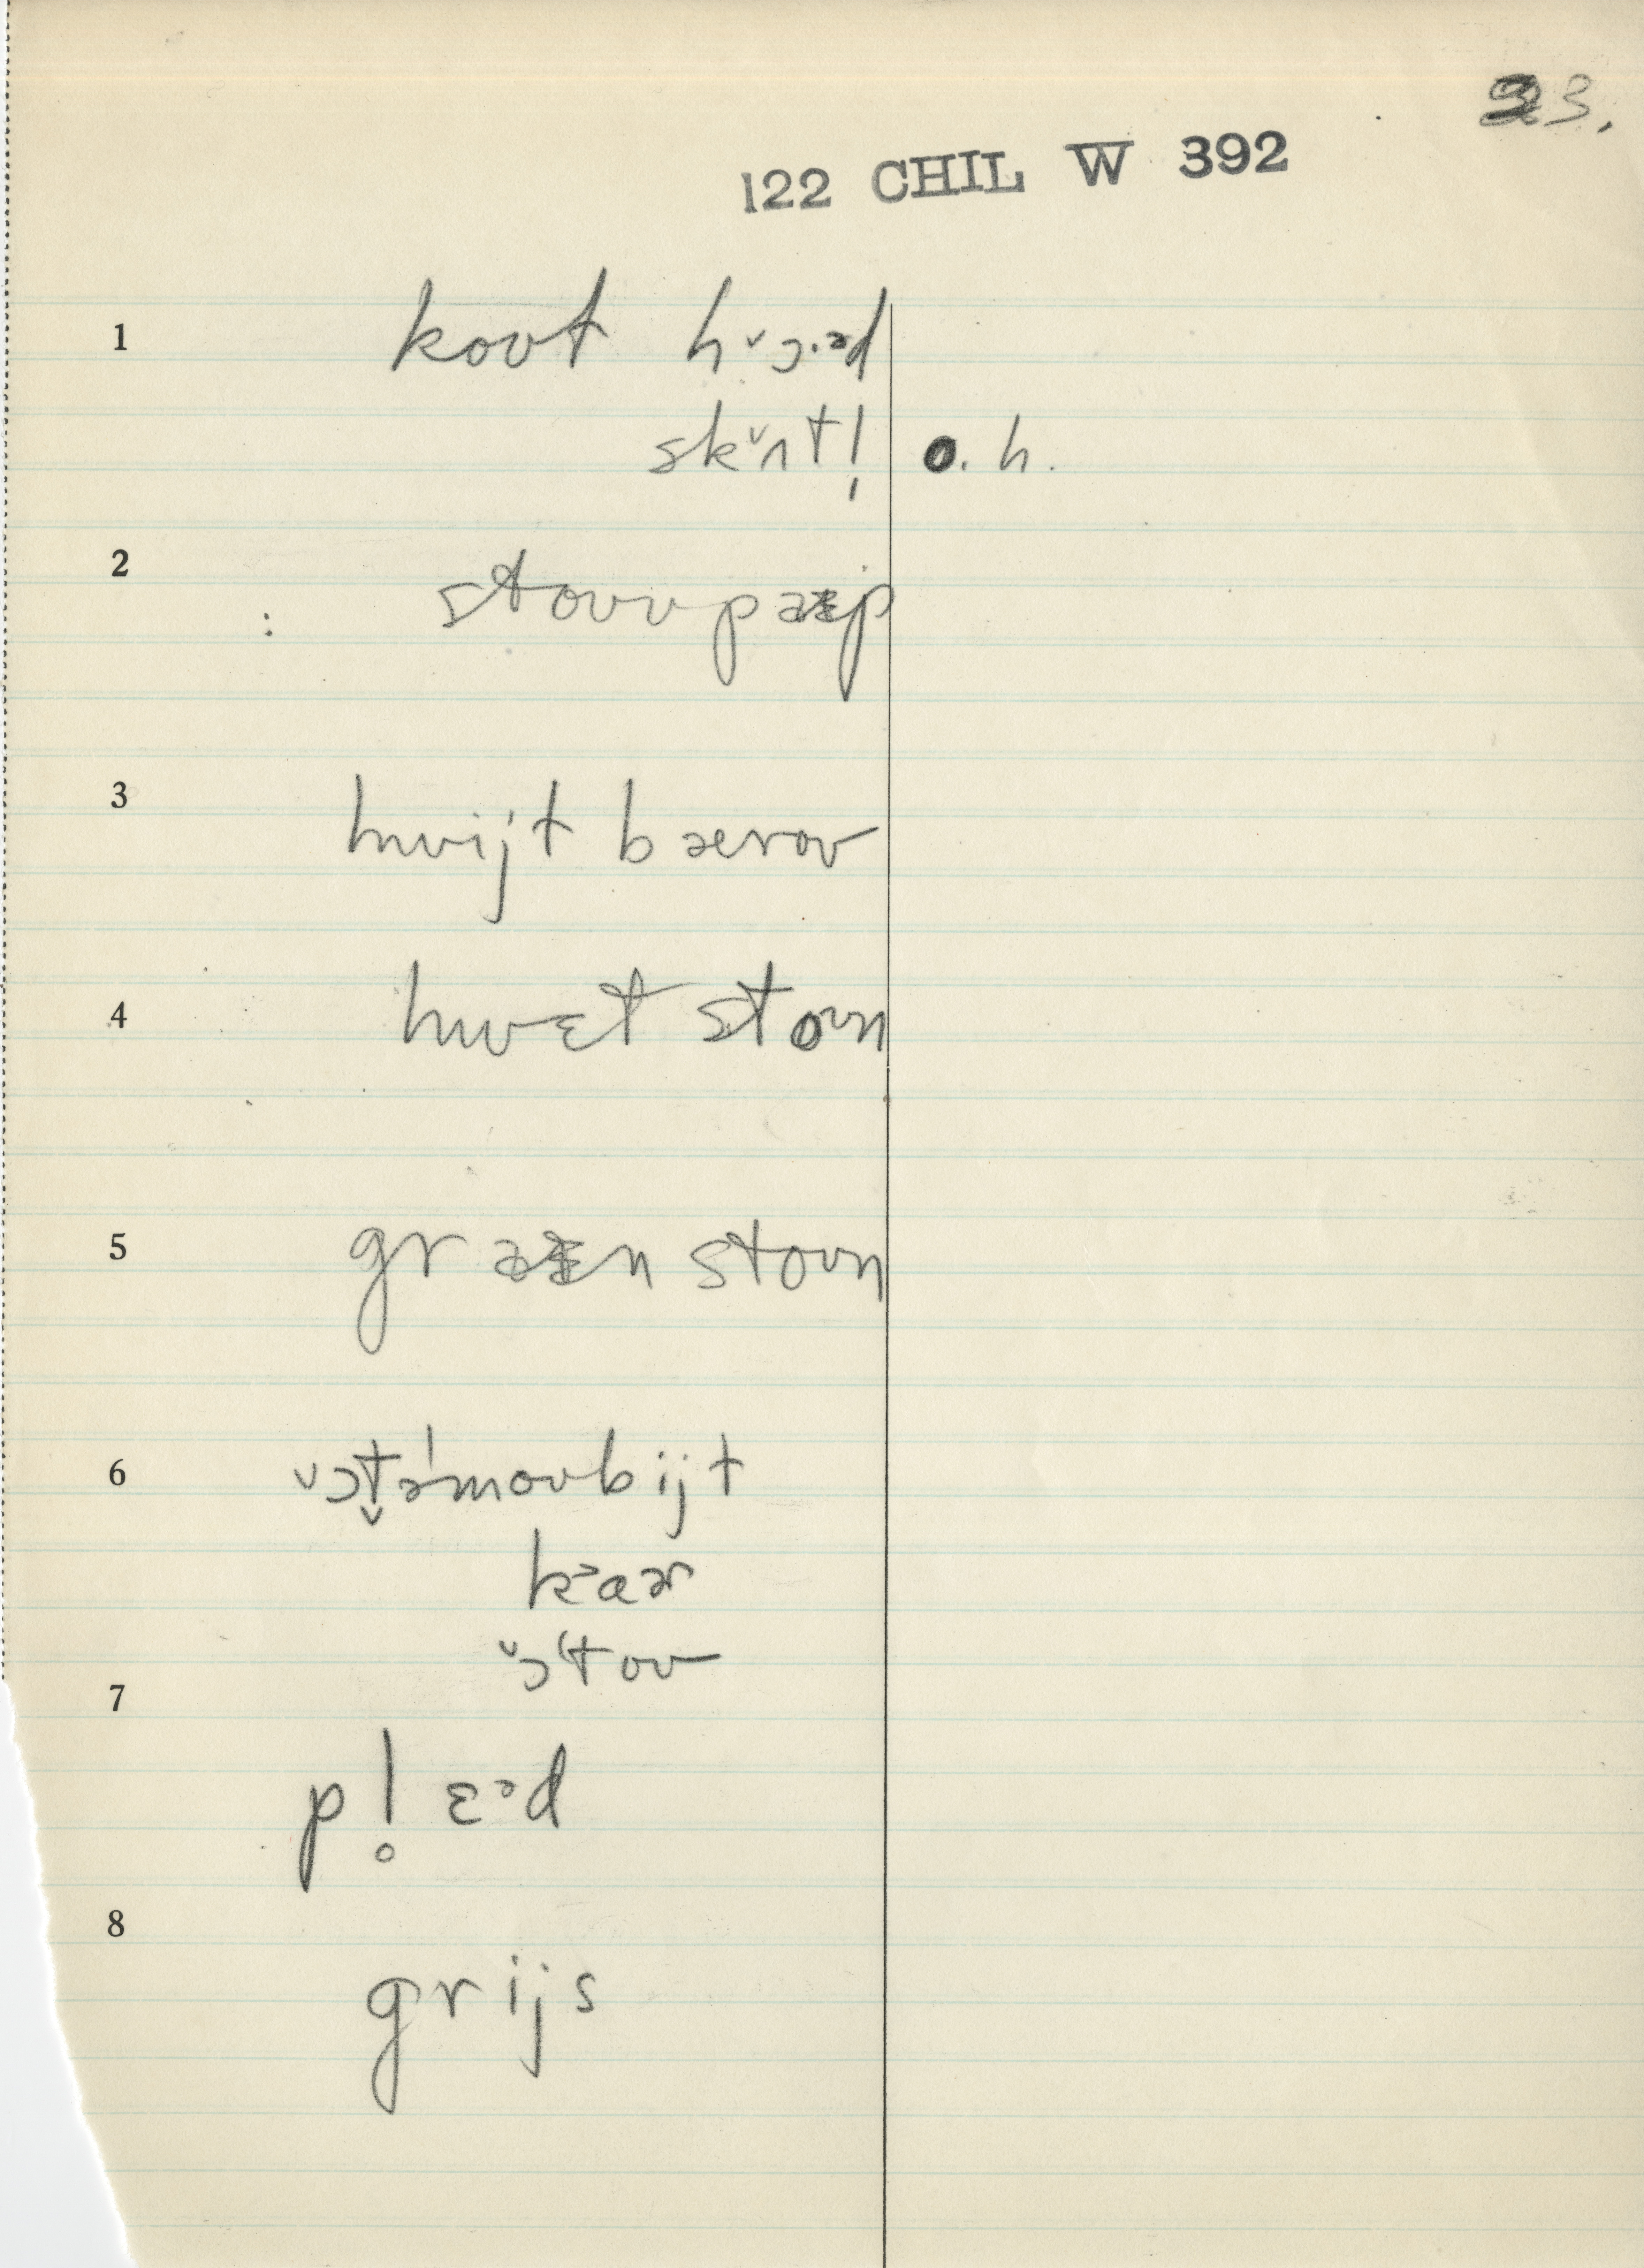 23.
122 CHIL W 392
1 koʊt hᶷɔ·ᵊd
skᶷnt! o. h.
2 stoʊvpaɪp
3 hwijt bærou
4 hwɛt stoʊn
5 graɪn stoʊn
6 ᶷɔt̬əˈmoʊbijt
kᵊaɚ
ᶷɔˈtoʊ
7
pl̥ɛᵊd
8
grijs